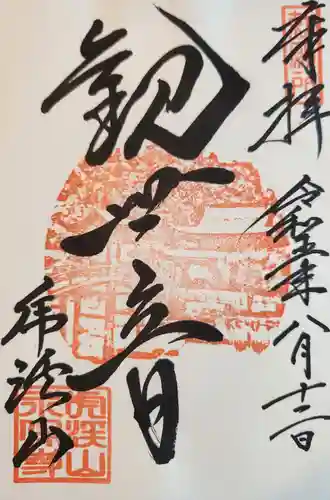 奉拝
令和五年八月十二日
観世音
虎渓山
虎渓山永保寺